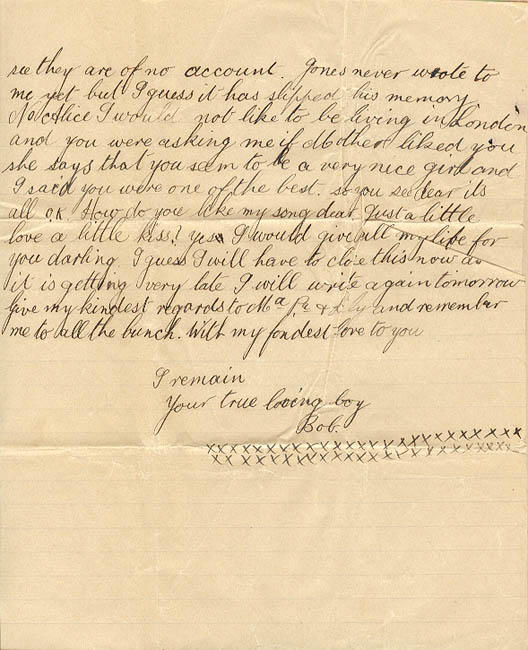 see they are of no account. Jones never wrote to
me yet but I guess it has slipped his memory
No Alice I would not like to be living in London
and you were asking me if Mother liked you
she says that you seem to be a very nice girl and
I said you were one of the best. so you see dear its
all O.K. How do you like my song dear Just a little
love a little kiss? yes I would give all my life for
you darling. I guess I will have to close this now as
it is getting very late I will write again tomorrow
Give my kindest regards to Ma, Pa & and remember
me to all the bunch. With my fondest love to you
I remain
Your true loving boy
Bob.
xxxxxxxxxxxxxxxxxxxxxxxxxx
xx xxxxxxxxxxxxxxxxxxxxxxxx